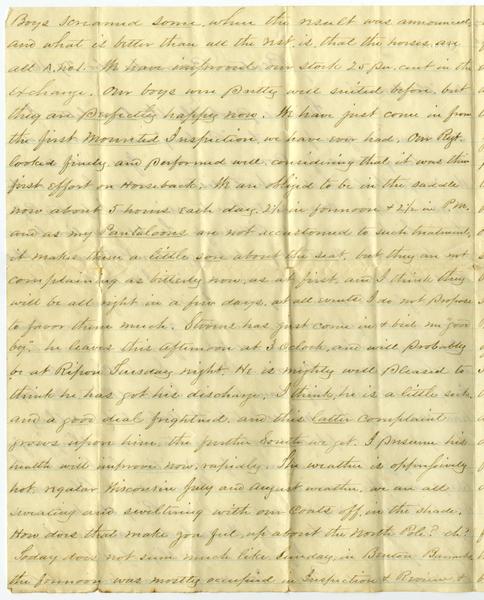 Boys screamed some, when the result was announced
and what is better than all the rest, is, that the horses, are
all A.No1. We have improved our stock 25 per cent in the
exchange. Our boys were pretty well suited before, but
they are perfectly happy now. We have just come in from
the first Mounted Inspection, we have ever had, Our Regt.
looked finely, and performed well, considering that it was their
first effort on Horseback. We are obliged to be in the saddle
now about 5 hours each day. 2½ in forenoon & 2½ in P.M.
and as my Pantaloons are not accustomed to such treatment,
it makes them a little sore about the seat, but they are not
complaining as bitterly now, as at first, and I think they
will be all right in a few days, at all events I do not propose
to favor them much. has just come in & bid me "good
bye" he leaves this afternoon at 3 oclock, and will probably
be at Ripon Tuesday night. He is mightily well pleased to
think he has got his discharge. I think, he is a little sick
and a good deal frightned, and this latter complaint
grows upon him, the further South we get. I presume his
health will improve now, rapidly. The weather is oppressively
hot, regular Wisconsin July and August weather, we are all
sweating and sweltering with our Coats off, in the shade.
How does that make you feel up about the North Pole? eh?
Today does not seem much like Sunday, in Benton Barracks
the forenoon was mostly occupied in Inspection & Review &